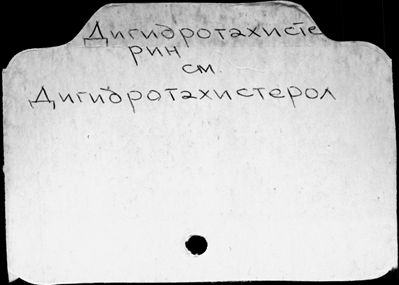 Дигидротахисте
рин
см.
Дигидротахистерол